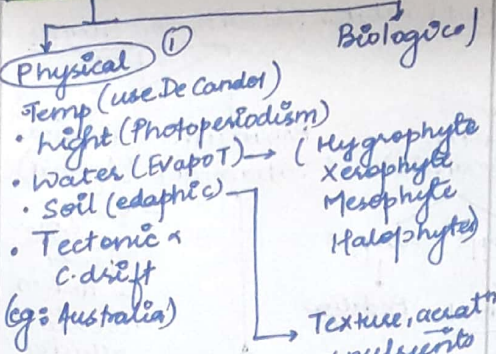 ①
Biological
Physical
Temp (use De Candol)
• Light (Photoperiodism)
• Water (EvapoT) → (Hygrophyte
Xerophyte
Mesophyte
Halophytes)
• Soil (edaphic)
• Tectonic &
C. drift
(eg: Australia)
Texture, aeratn